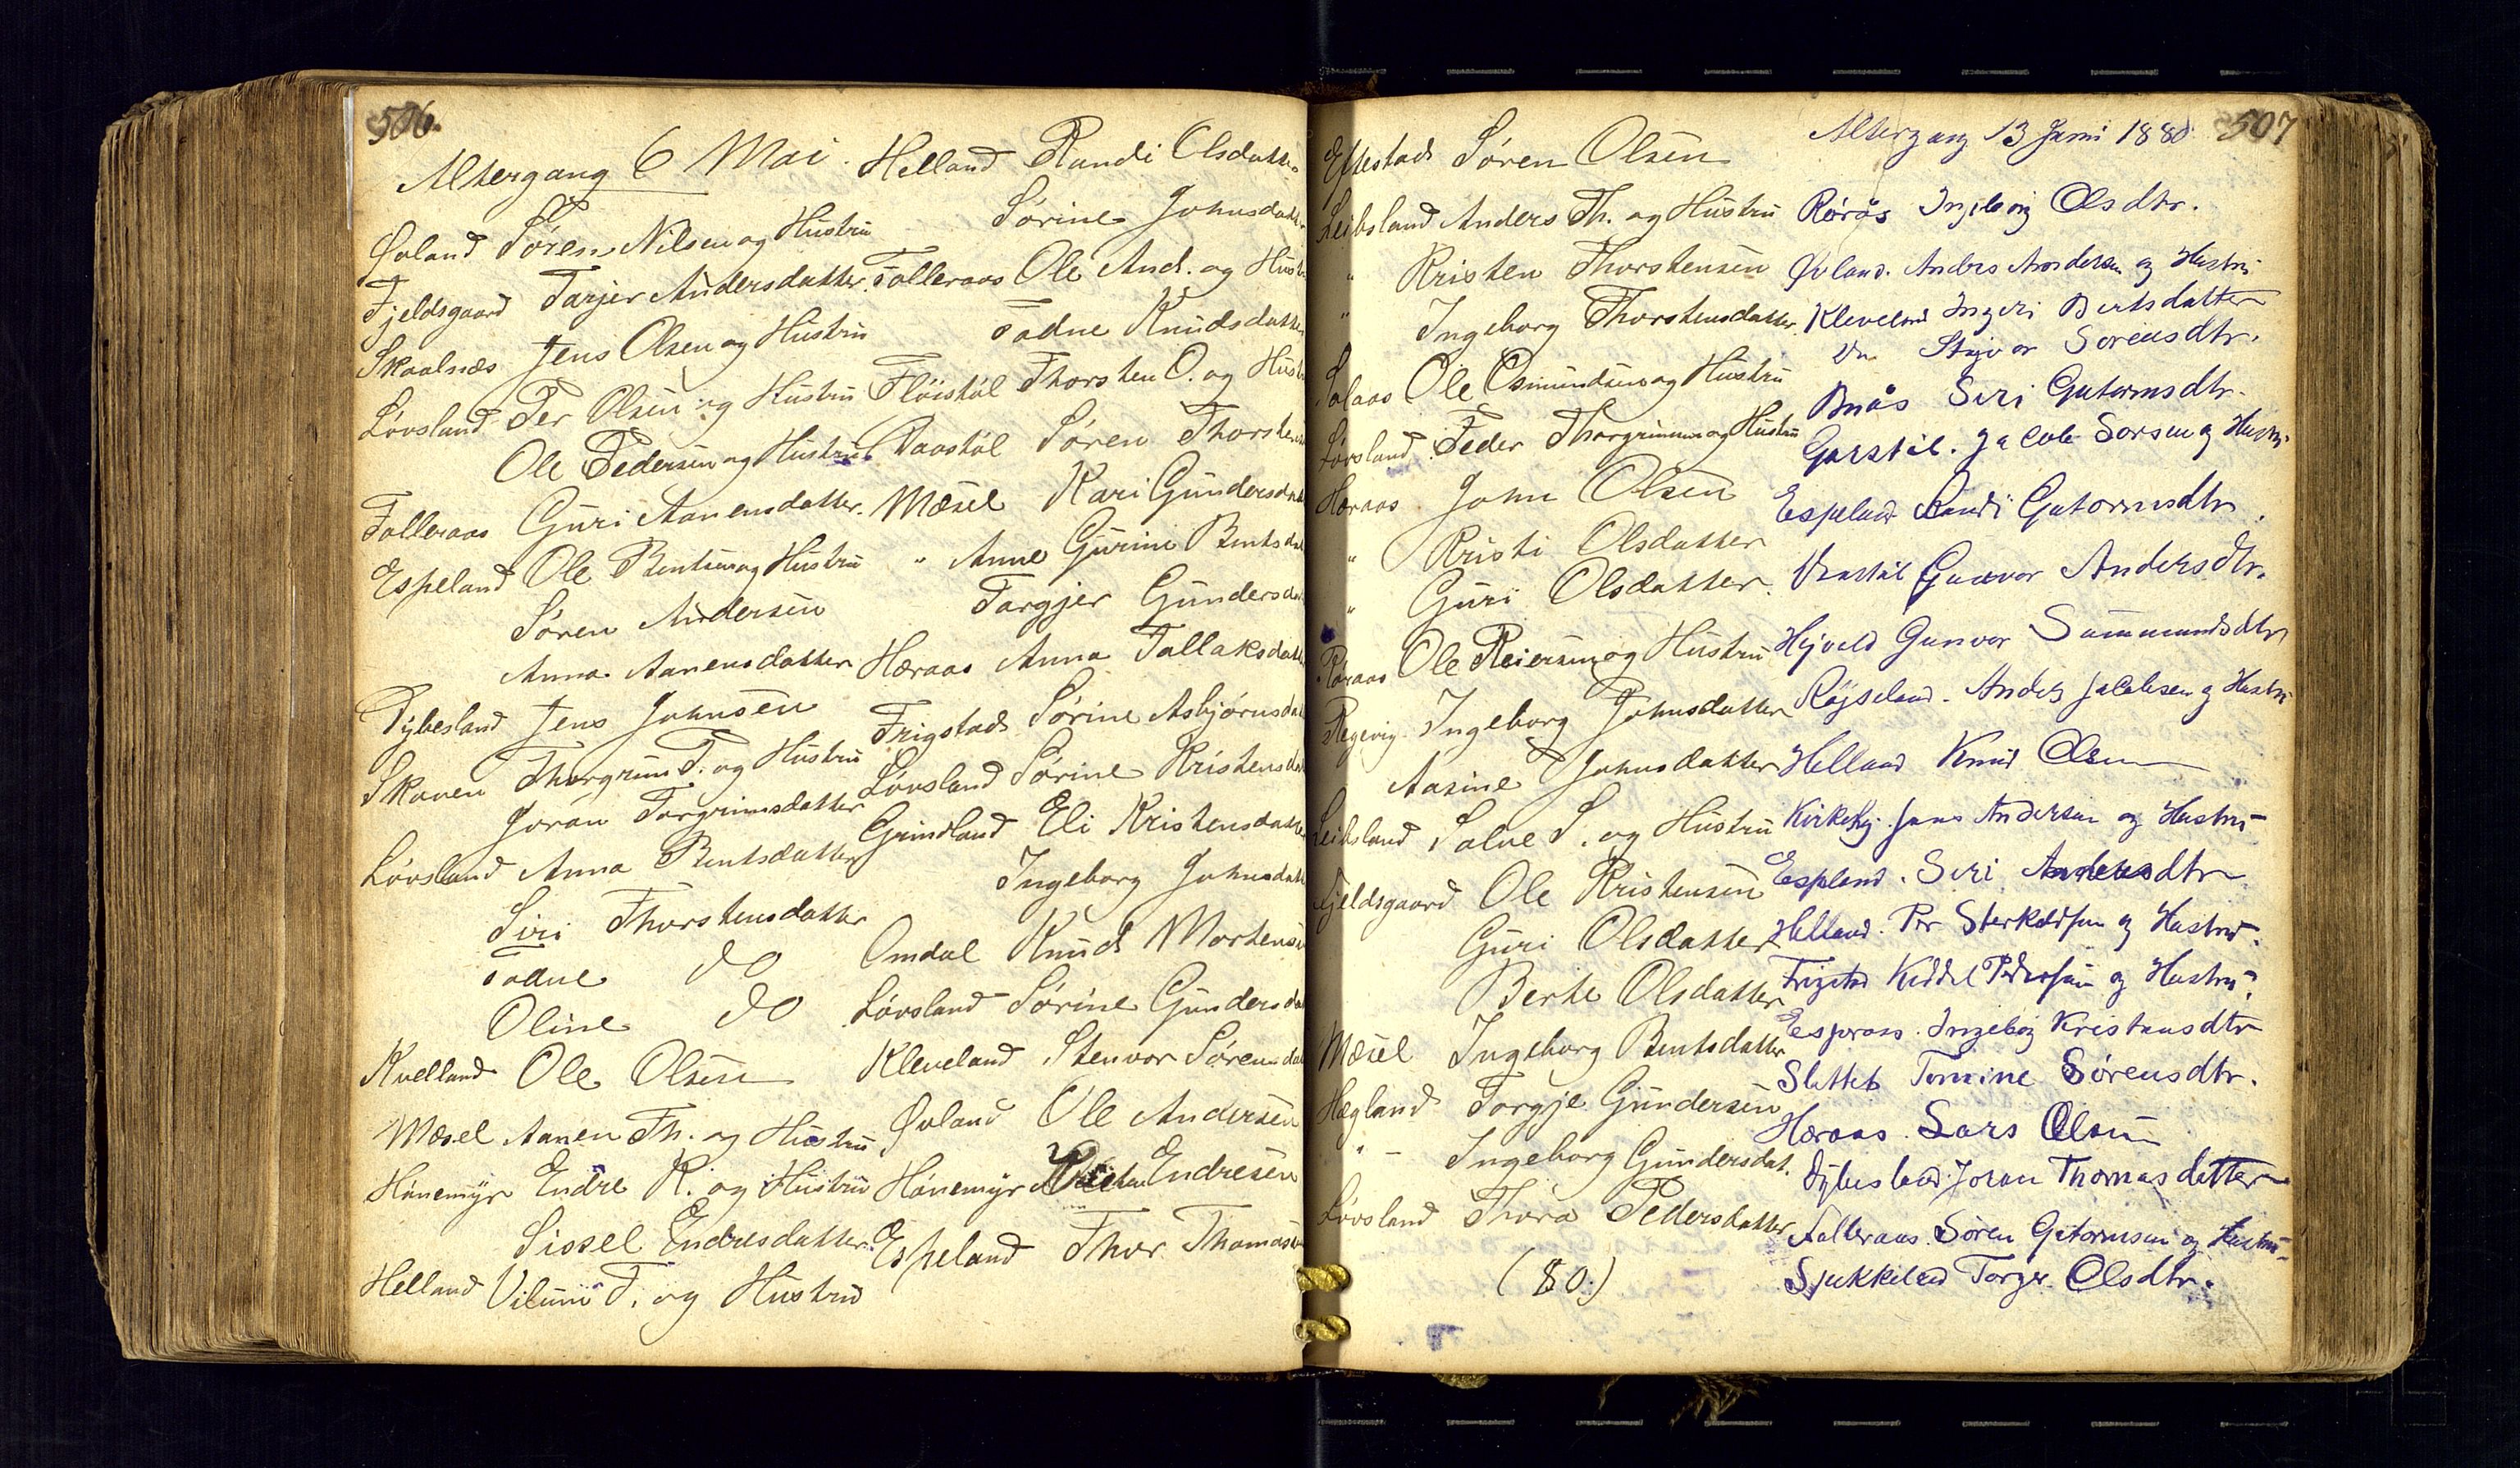 506.
Altergang 6 Mai.
Øvland Søren Nilsen og Hustru
Fjeldsgaard Tarjer Andersdatter.
Skaalnæs Jens Olsen og Hustru
Løvsland Per Olsen og Hustru
Ole Pedersen og Hustru
Falleraas Guri Aanensdatter.
Espeland Ole Bentsen og Hustru
Søren Andersen
Anna Aanensdatter
Dybesland Jens Johnsen
Skoven Thorgrim T. og Hustru
Joran Torgrimsdatter
Løvsland Anna Bentsdatter
Siri Thorstensdatter
Tadne do
Oline do
Kvelland Ole Olsen
Mæsel Aanen Th. og Hustru
Hønemyr Endre K. og Hustru
Sissel Endresdatter.
Helland Vilum T. og Hustru
Helland Randi Olsdatter
Sørine Johnsdatter
Falleraas Ole And. og Hustr
Tadne Knudsdatter
Fløistøl Thorsten O. og Hustr
Vraastøl Søren Thorsten
Mæsel Kari Gundersdat
" Anne Gurine Bentsdat
Targjer Gundersdat
Høraas Anna Tallaksdatt
Frigstad Sørine Asbjørnsdat
Løvsland Sørine Kristensdat
Grindland Eli Kristensdatter
Ingeborg Johnsdatt
Omdal Knud Mortensen
Løvsland Sørine Gundersdat
Kleveland Stenvor Sørensdat
Øvland Ole Andersen
Hønemyr Endresen
Espeland Thor Thomasen
507
Eftestad Søren Olsen
Leibsland Anders Th. og Hustru
" Kristen Thorstensen
" Ingeborg Thorstensdatter.
Solaas Ole Osmundsen og Hustru
Løvsland Peder Thorgrimsen og Hustru
Høraas John Olsen
" Kristi Olsdatter
" Guri Olsdatter.
Røraas Ole Reiersen og Hustru
Regevig Ingeborg Johnsdatter
Aasine Johnsdatter
Leibsland Salve S. og Hustru
Fjeldsgaard Ole Kristensen
Guri Olsdatter
Berte Olsdatter
Mæsel Ingeborg Bentsdatter
Hægland Torgje Gundersen
" - Ingeborg Gundersdat.
Løvsland Thora Pedersdatter
(80.)
Altergang 13 Juni 1880
Røraas Ingeborg Olsdtr.
Øvland. Anders Andersen og Hustru
Kleveland Ingeri Bertsdatter
Do Stejvor Sorensdtr.
Siri Gutormsdtr.
Jacob Sorsen og Hustru
Espeland Randi Gutormsdtr.
Vrastøl Gunvor Andersdtr.
Gunvor Sammundsdtr
Røjseland. Anders Jacobsen og Hustru
Helland Knud Olsen
Kirkeby. Jens Andersen og Hustru
Espland. Siri Andersdtr
Helland. Per Sterkedsen og Hustru.
Frigstad Keddel Pedersen og Hustru.
Ingeborg Kristensdtr
Slettet Tomine Sörensdtr.
Høraas. Lars Olsen
Dybesland Joran Thomasdatter
Falleraas. Sören Gutormsen og Hustru
Torger Olsdtr.